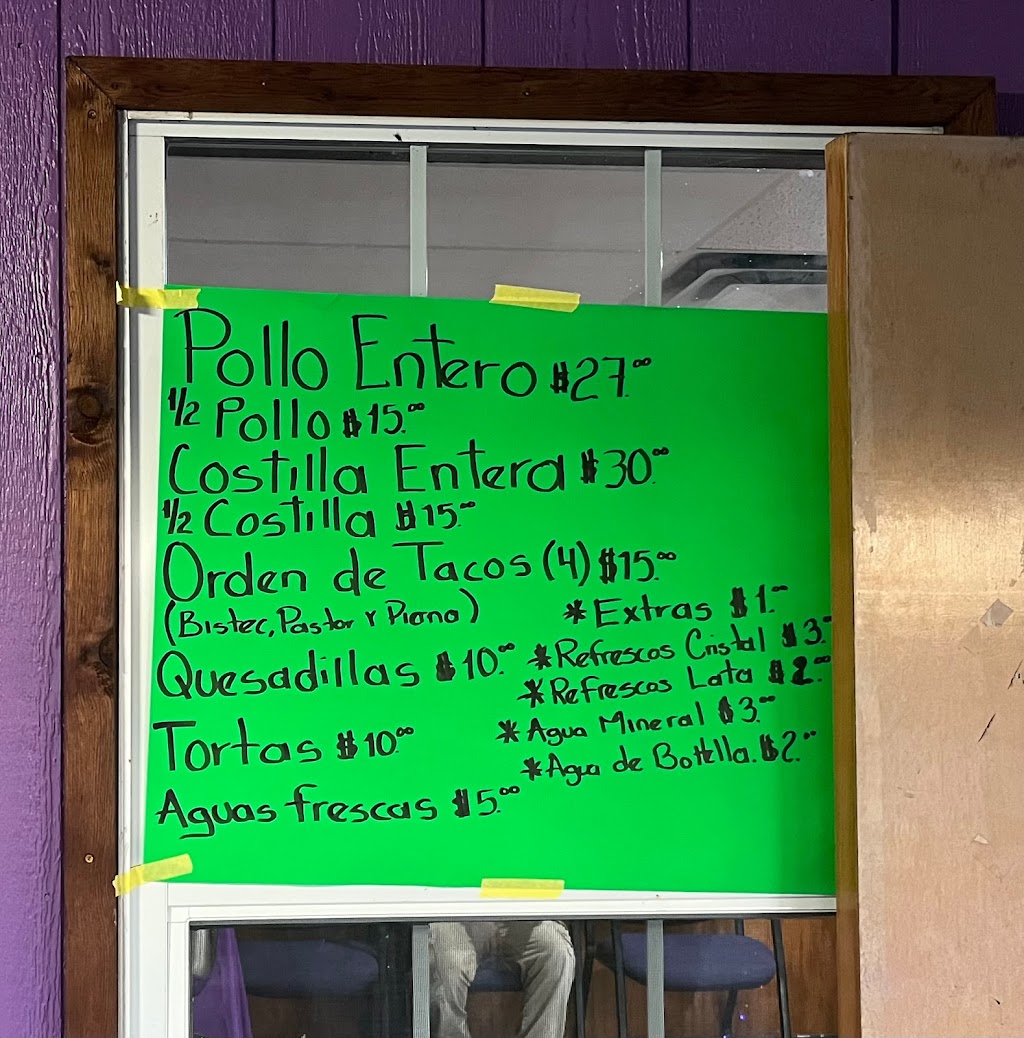 Pollo Entero $27.00
1/2 Pollo $15.00
Costilla Entera $30.00
1/2 Costilla $15.00
Orden de Tacos (4) $15.00
(Bistec, Pastor Y Pierna)
* Extras $1.00
Quesadillas $10.00
* Refrescos Cristal $3.00
* Refrescos Lata $2.00
Tortas $10.00
* Agua Mineral $3.00
* Agua de Bottella. $2.00
Aguas frescas $5.00